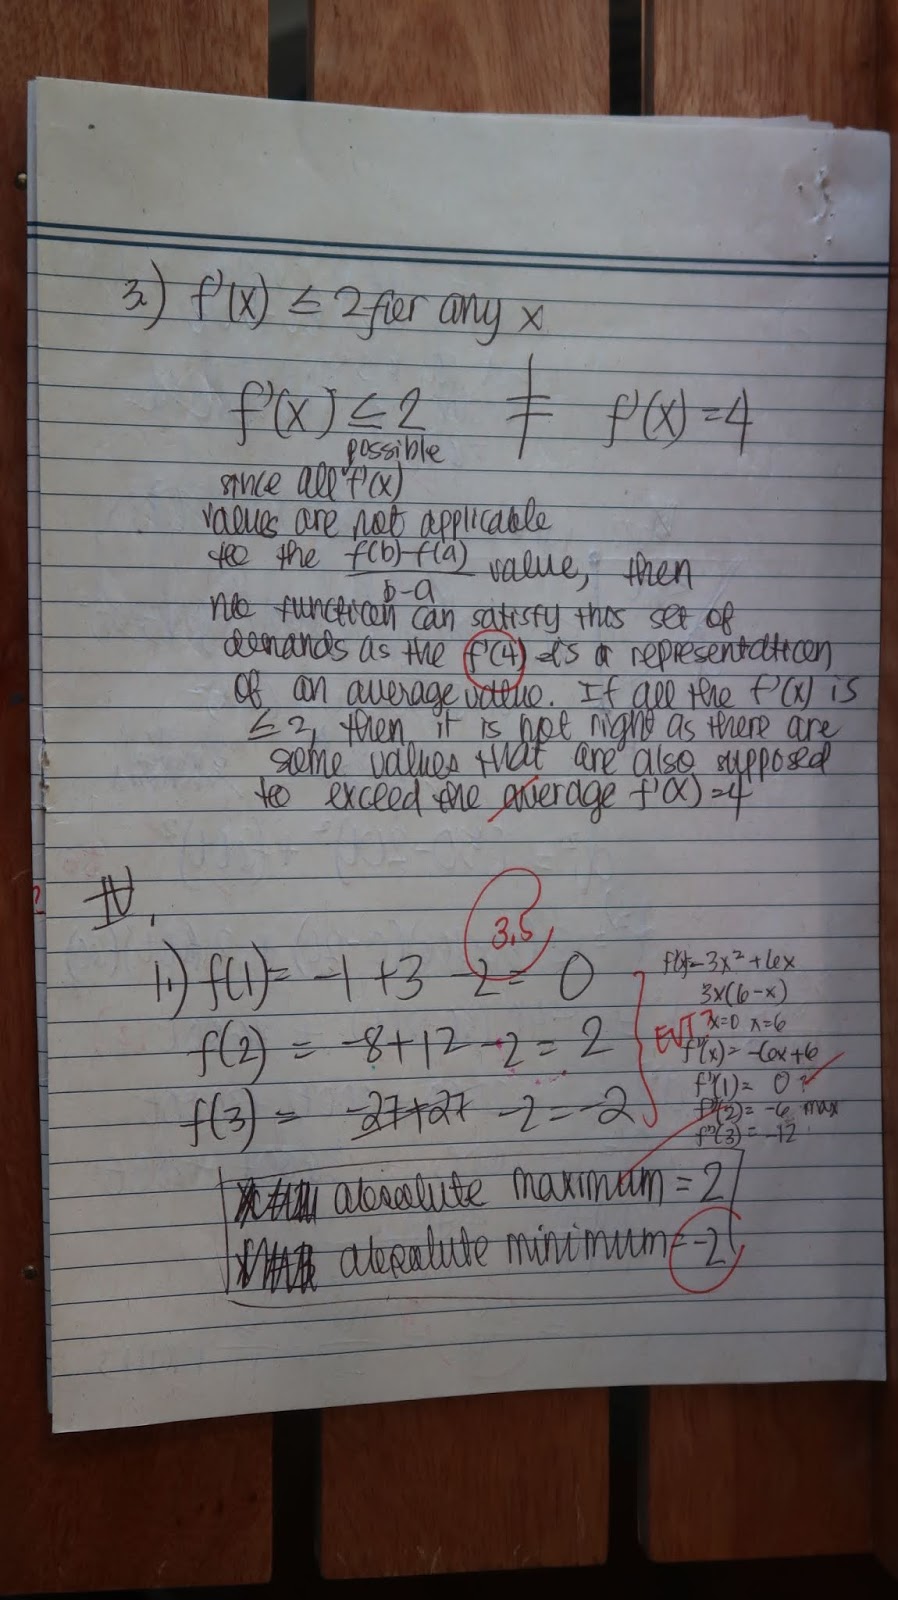 3.) f'(x) ≤ 2 for any x
f'(x) ≤ 2 ≠ f'(x) = 4
possible
since all f'(x)
values are not applicable
to the f(b)-f(a) / b-a value, then
no function can satisfy this set of
demands as the f'(4) is a representation
of an average value. If all the f'(x) is
≤ 2, then it is not right as there are
some values that are also supposed
to exceed the average f'(x) = 4
IV.
3.5
1.) f(1) = -1 + 3 - 2 = 0
f(2) = -8 + 12 - 2 = 2
f(3) = -27 + 27 - 2 = -2
f'(x) = -3x² + 6x
3x(6-x)
EVT? x=0 x=6
f''(x) = -6x+6
f''(1) = 0
f''(2) = -6 max
f''(3) = -12
absolute maximum = 2
absolute minimum = -2